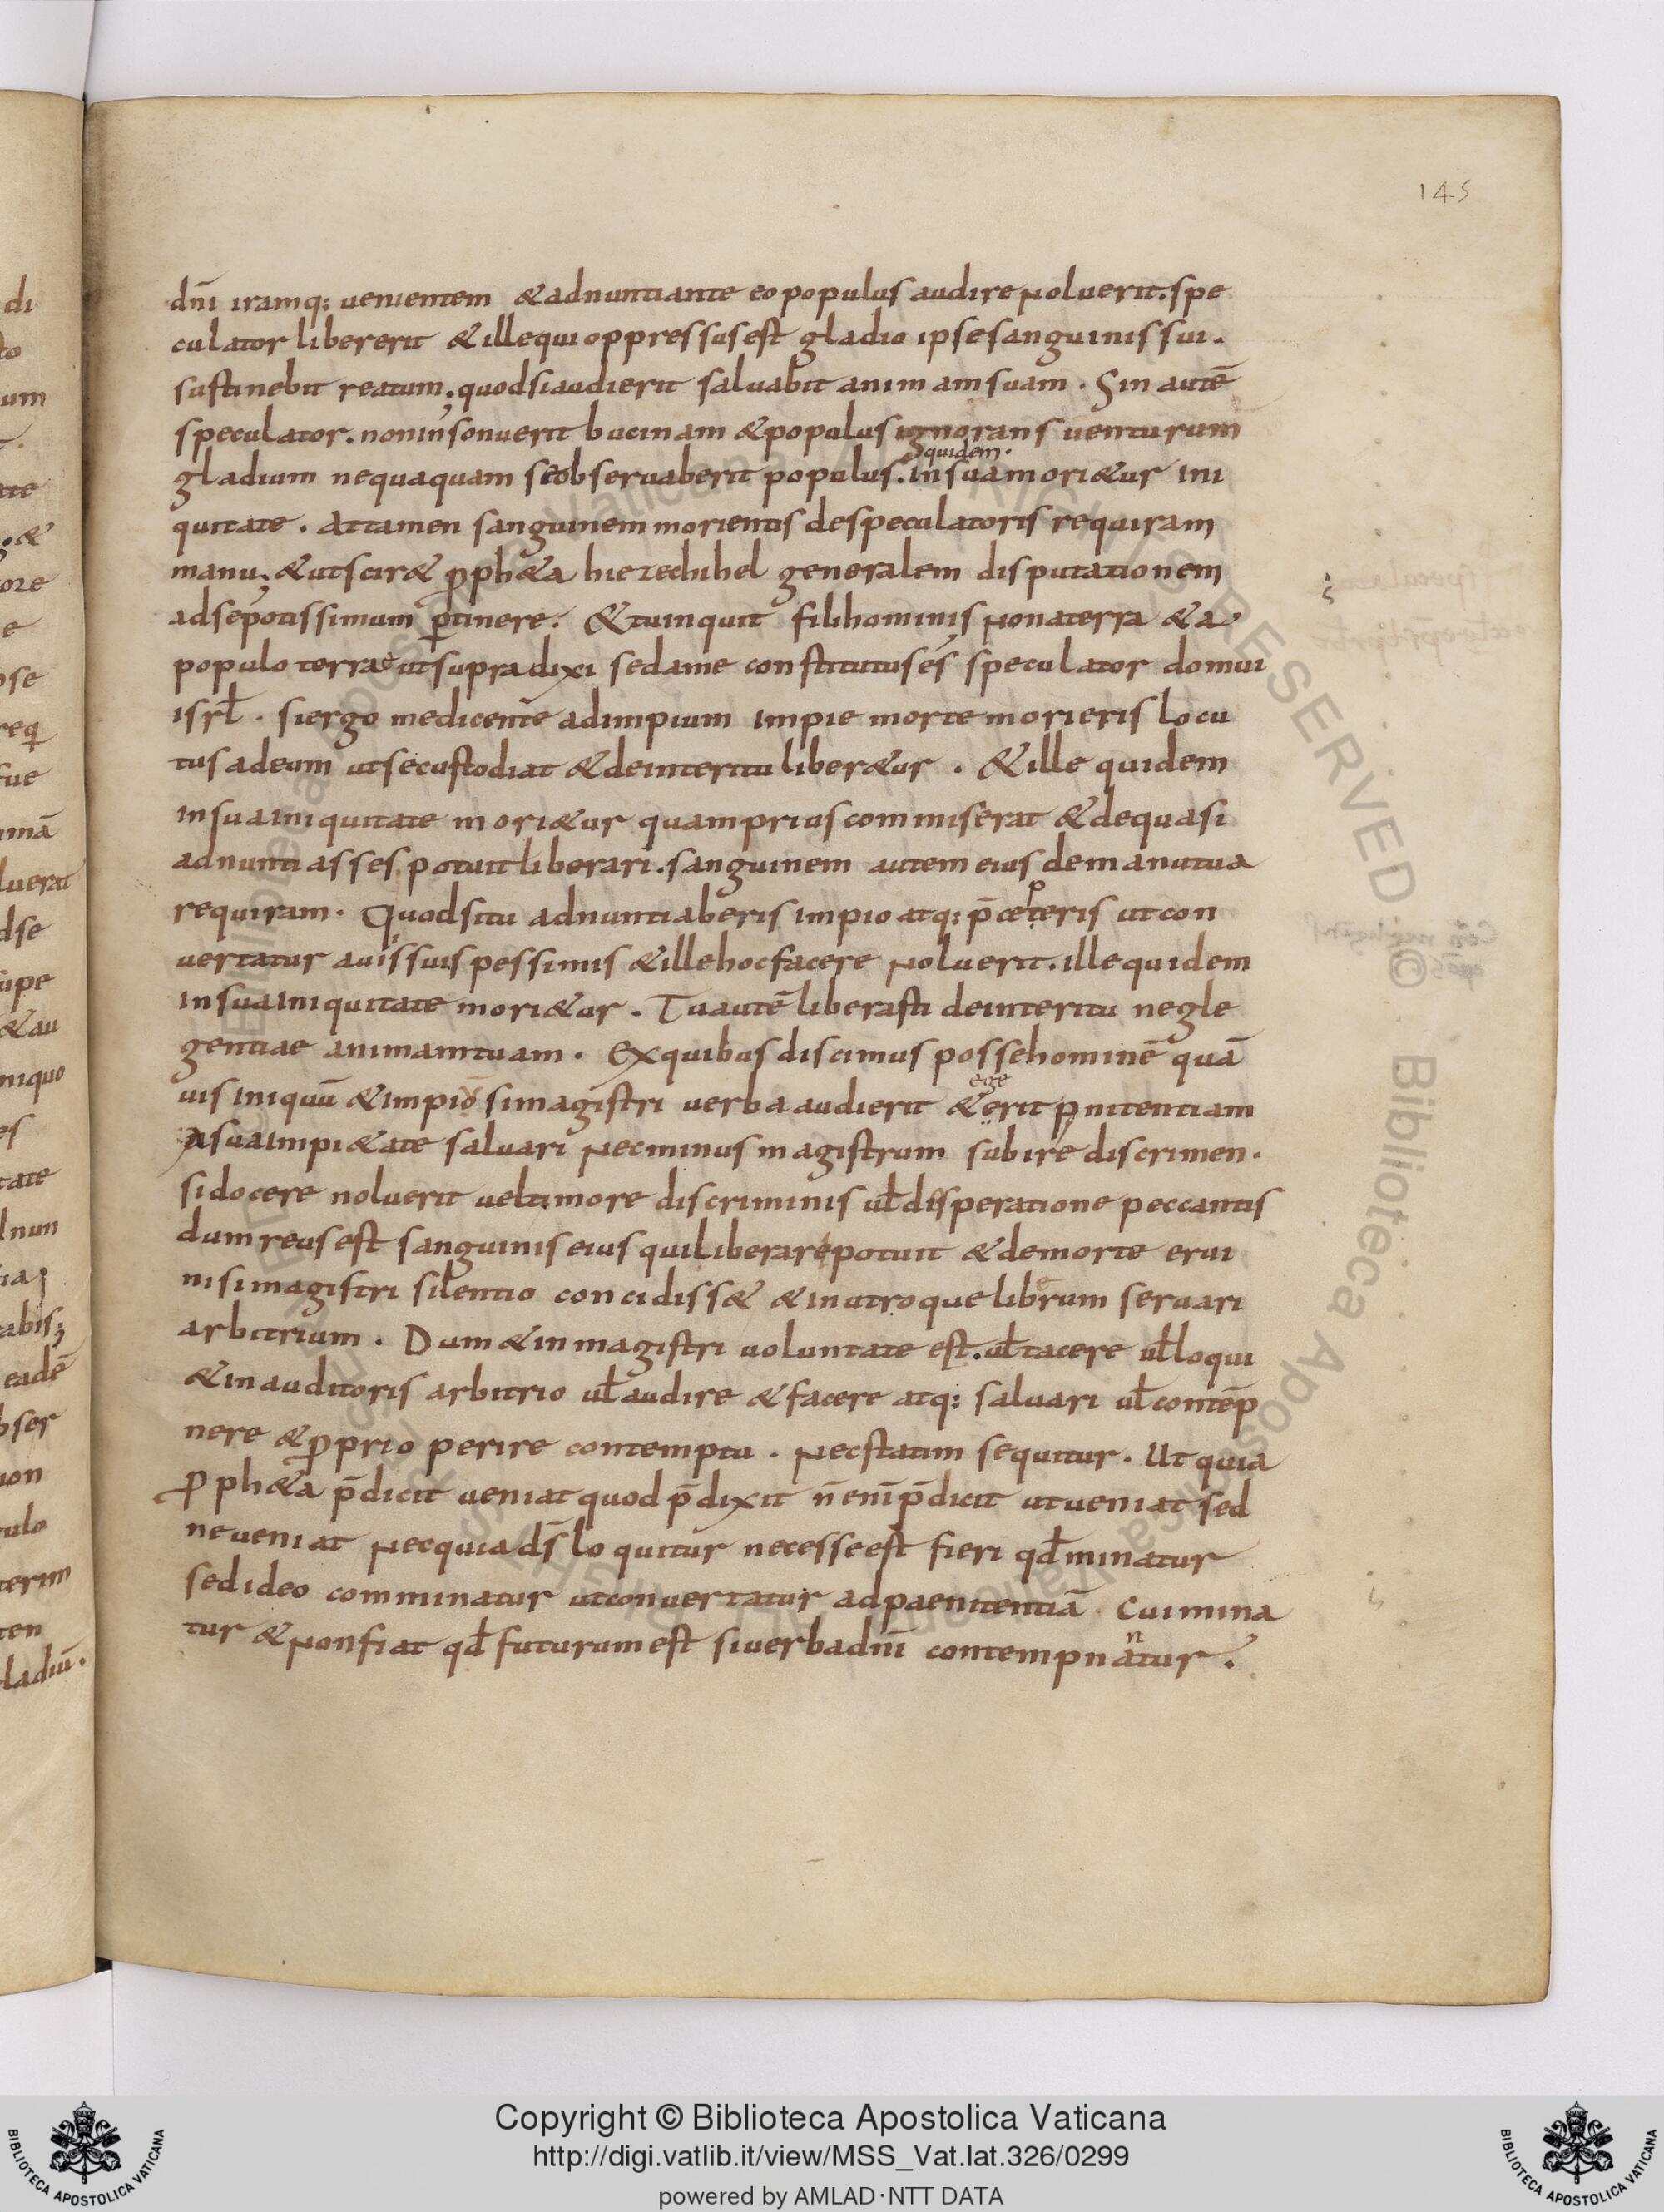 145
dnī iramq: uenientem & adnuntiante eo populus audire noluerit. spe
culator liber erit & ille qui oppressus est gladio ipse sanguinis sui.
sustinebit reatum. quod si audierit saluabit animam suam. Sin autē
speculator. non insonuerit bucinam & populus ignorans uenturum
gladium nequaquam se obseruaberit populus. in sua mori&ur ini
quidem.
quitate. Attamen sanguinem morientis de speculatoris requiram
manu; & ut scir& ꝓph&a hiezechihel generalem disputationem
ad se potissimum ꝑtinere. & tu inquit fili hominis non a terra & a
populo terrae ut supra dixi sed a me constitutus és speculator domui
isrł. si ergo me dicente ad impium impie morte morieris locu
tus ad eum ut se custodiat & de interitu liber&ur. & ille quidem
in sua iniquitate mori&ur quam prius commiserat & de quasi
adnuntiasses potuit liberari. sanguinem autem eius de manu tua
requiram. Quod si tu adnuntiaberis impio atq: p̄ceteris ut con
uertatur a uiis suis pessimis & ille hoc facere noluerit. ille quidem
in sua iniquitate mori&ur. Tu autē liberasti de interitu negle
gentiae animam tuam. Ex quibus discimus posse hominē quā
uis iniquū & impiū si magistri uerba audierit & erit pnitentiam
ege
a sua impi&ate saluari nec minus magistrum subire discrimen.
si docere noluerit uel timore discriminis uł disperatione peccantis
dum reus est sanguinis eius qui liberare potuit & de morte erui
nisi magistri silentio concidiss& & in utroque liberum seruari
arbitrium. Dum & in magistri uoluntate est. uł tacere uł loqui
& in auditoris arbitrio uł audire & facere atq: saluari uł contēp
nere & ꝓprio perire contemptu. nec statim sequitur. Ut quia
ꝓph&a p̄dicit ueniat quod p̄dixit n̄ enī p̄dicit ut ueniat sed
ne ueniat nec quia ds̄ loquitur necesse est fieri qđ minatur
sed ideo comminatur ut conuertatur ad paenitentiā cui mina
tur & non fiat qđ futurum est si uerba dnī contempnantur.
Copyright © Biblioteca Apostolica Vaticana
http://digi.vatlib.it/view/MSS_Vat.lat.326/0299
powered by AMLAD·NTT DATA
BIBLIOTECA APOSTOLICA VATICANA
BIBLIOTECA APOSTOLICA VATICANA